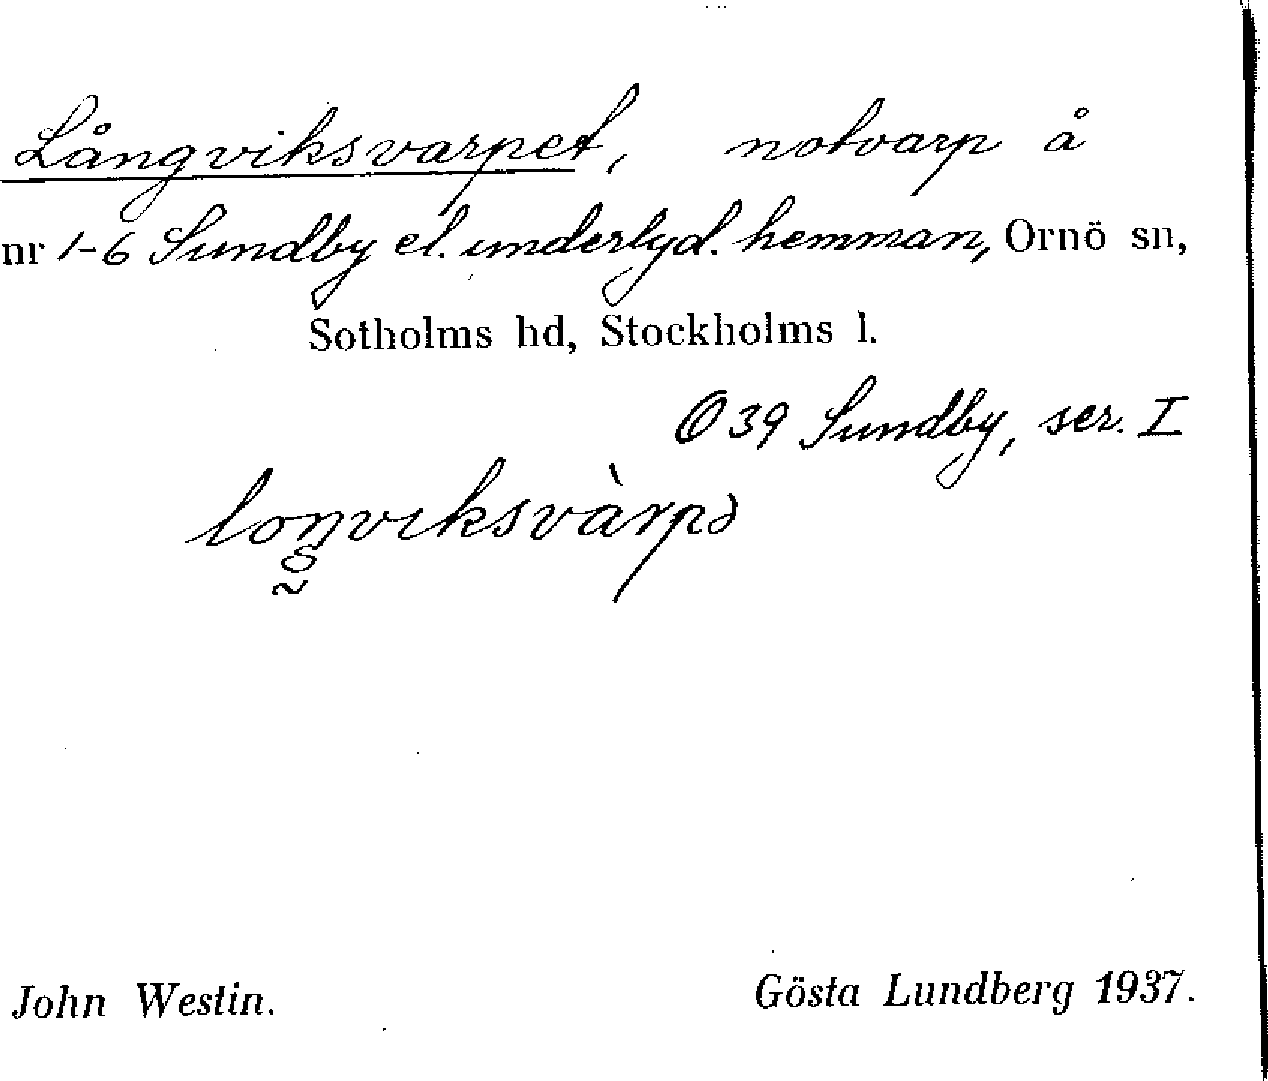 Långviksvarpet, notvarp å
nr 1-6 Sundby el. underlyd. hemman, Ornö sn,
Sotholms hd, Stockholms l.
Ö 39 Sundby, ser. I
loŋviksvàrpə
John Westin. Gösta Lundberg 1937.